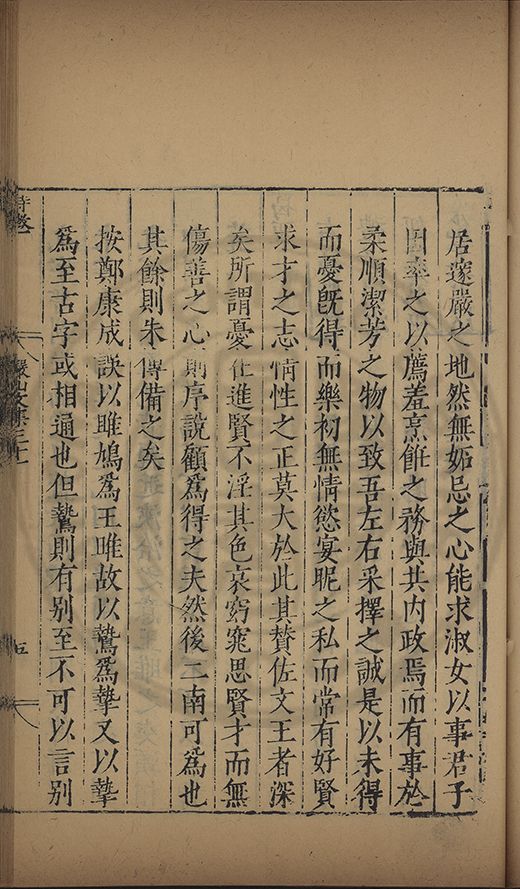 居邃嚴之地然無妬忌之心能求淑女以事君子
因率之以薦羞烹飪之務與共內政焉而有事於
柔順潔芳之物以致吾左右采擇之誠是以未得
而憂旣得而樂初無情慾宴昵之私而常有好賢
求才之志情性之正莫大於此其賛佐文王者深
矣所謂憂在進賢不淫其色哀窈窕思賢才而無
傷善之心則序說顧爲得之夫然後二南可爲也
其餘則朱傳備之矣
按鄭康成訣以雎鳩爲王雎故以鷙爲摯又以摯
爲至古字或相通也但鷙則有别至不可以言别